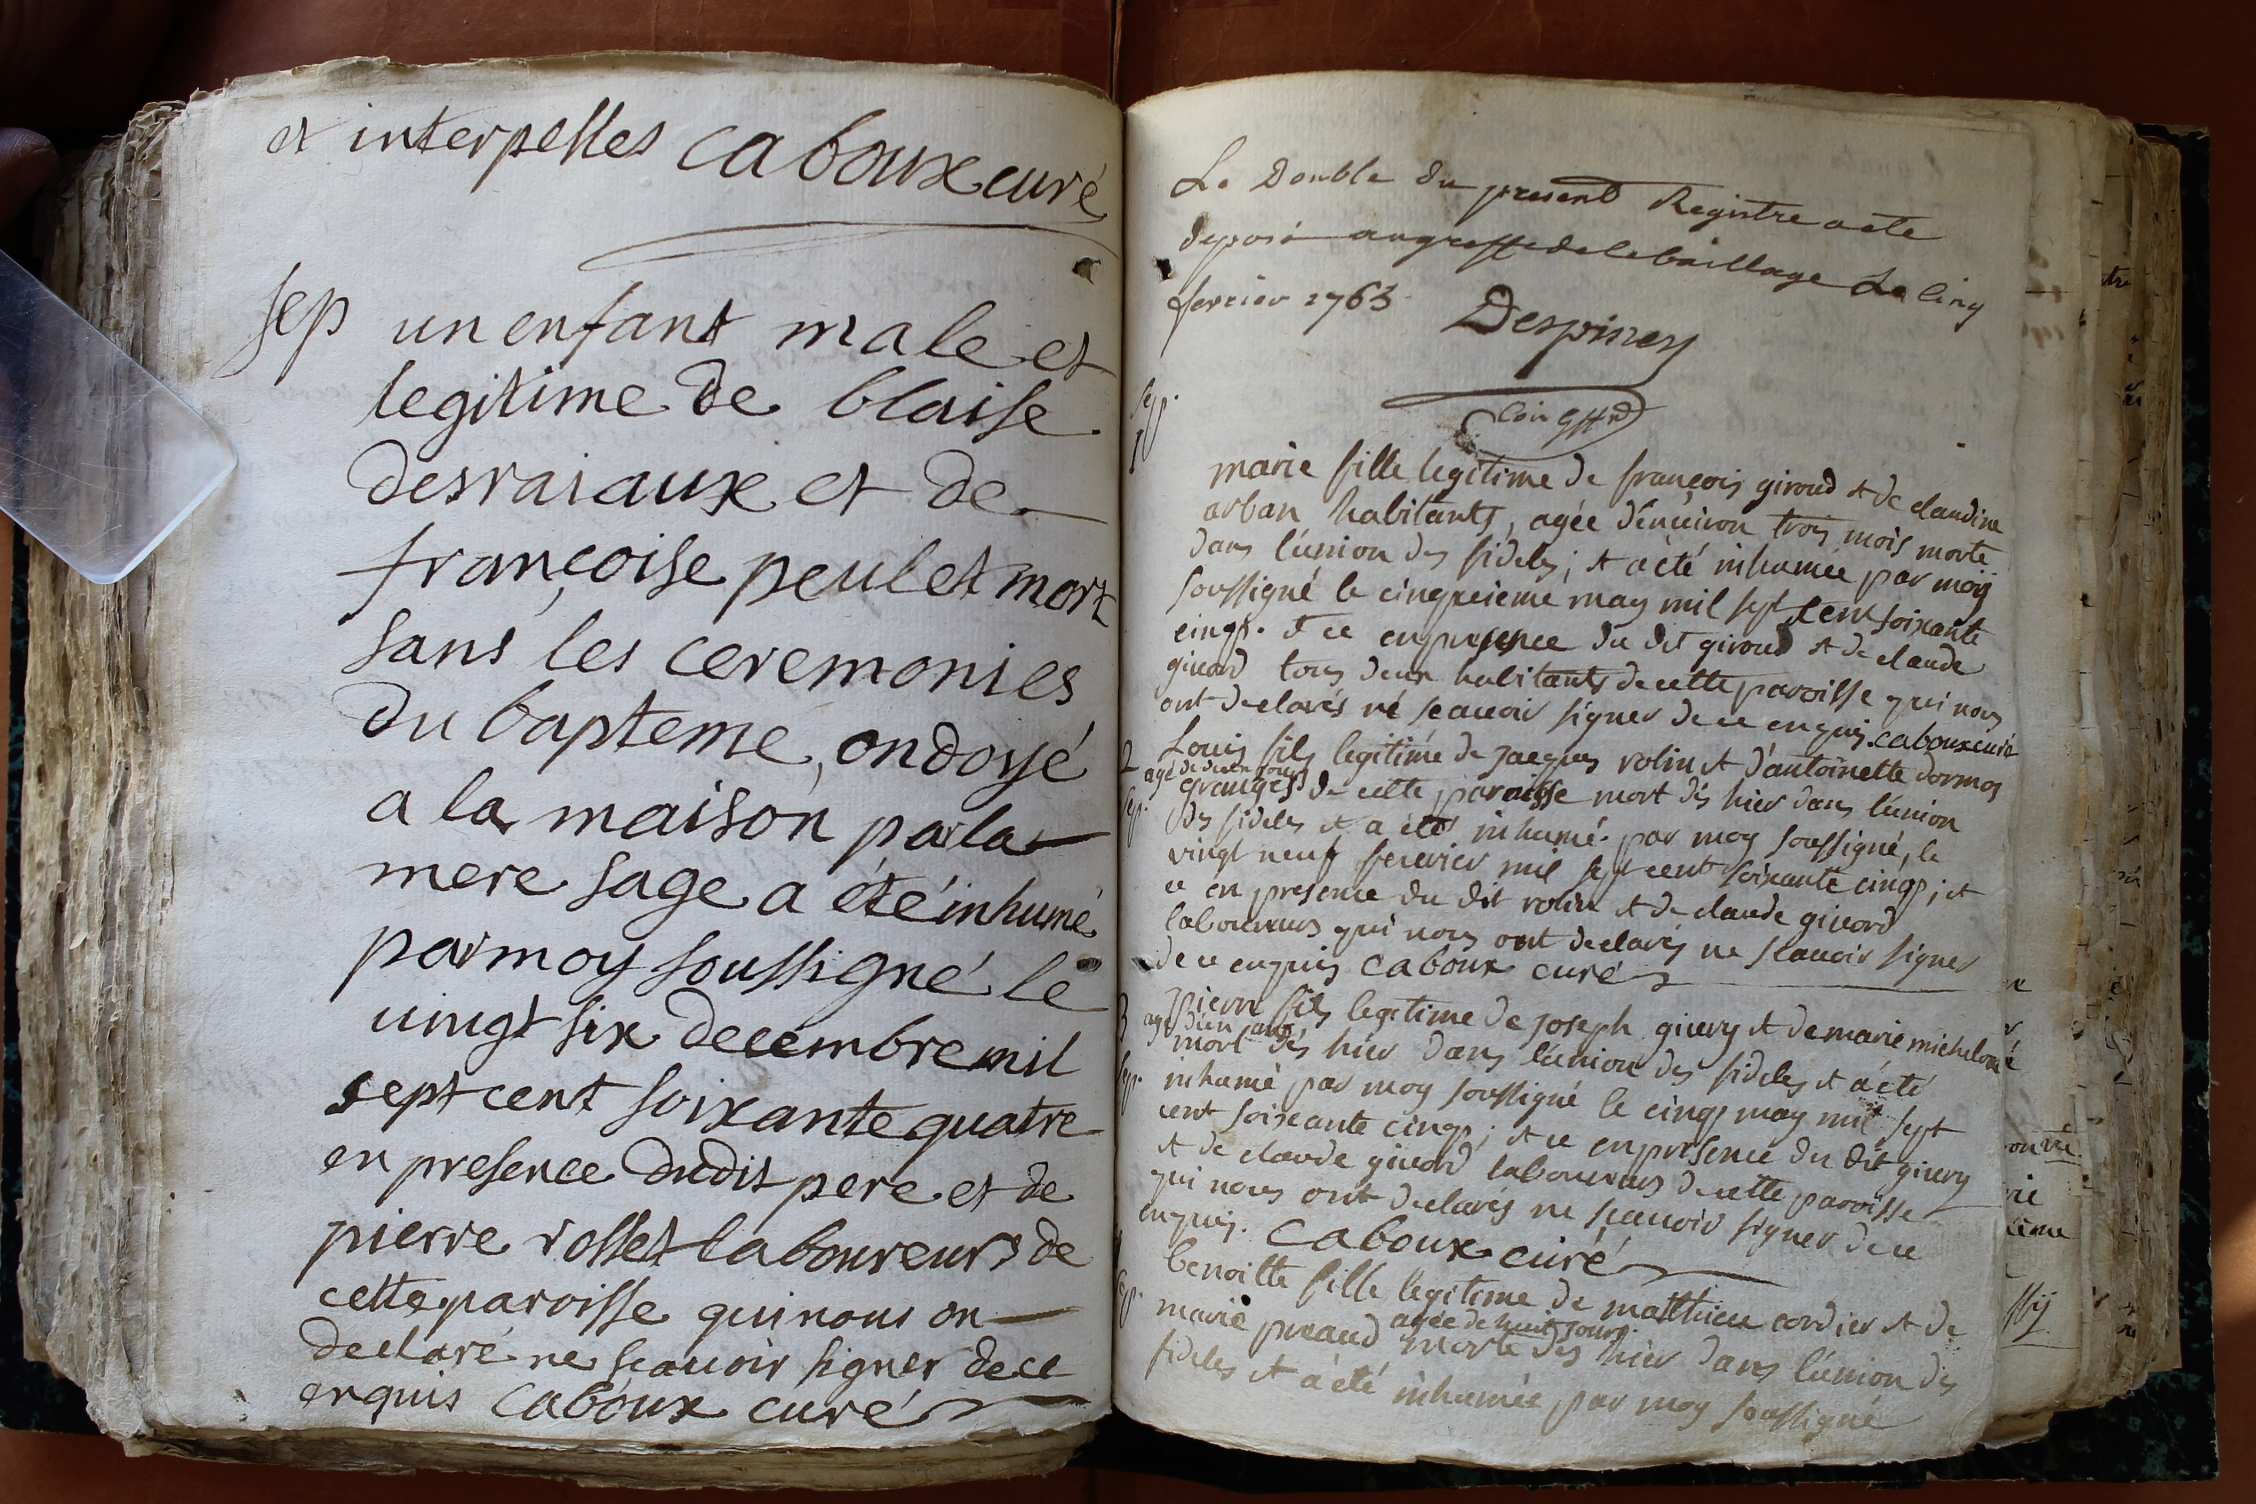 et interpelles caboux curé
sep un enfant male et
legitime de blaise
desraiaux et de
françoise peulet mort
sans les ceremonies
du bapteme, ondoyé
a la maison par la
mere sage a été inhumé
par moy soussigné le
vingt six decembre mil
sept cent soixante quatre
en presence dudit pere et de
pierre rosset laboureurs de
cette paroisse qui nous on
declaré ne scauoir signer de ce
enquis caboux curé
Le Double du present Registre a ete
deposé au greffe de le baillage Le cinq
fevrier 1763 Despiney
sep.
1
marie fille legitime de françois giroud et de claudine
arban habitants, agée d'enuiron trois mois morte
dans l'union des fideles; et a été inhumée par moy
soussigné le cinquieme may mil sept cent soixante
cinq. et ce en presence du dit giroud et de claude
giuord tous deux habitants de cette paroisse qui nous
ont declarés né scauoir signer de ce enquis. caboux curé
2 Louis fils legitime de jacques rolin et d'antoinette dormoy
agé de deux jours
sep. granges de cette paroisse mort dés hier dans l'union
des fideles et a été inhumé par moy soussigné, le
vingt neuf feuvrier mil sept cent soixante cinq; et
ce en presence du dit rolin et de claude giuord
laboureurs qui nous ont declarés ne scauoir signer
de ce enquis caboux curé
3 pierre fils legitime de joseph giuery et de marie michelon
agé d'un an
mort dés hier dans l'union des fideles et a été
sep. inhumé par moy soussigné le cinq may mil sept
cent soixante cinq; et ce en presence du dit giuery
et de claude giuord laboureurs de cette paroisse
qui nous ont declarés ne scauoir signer de ce
enquis. caboux curé
benoitte fille legitime de matthieu cordier et de
agée de huit jours
sep. marie preaud morte dés hier dans l'union des
fideles et a été inhumée par moy soussigné